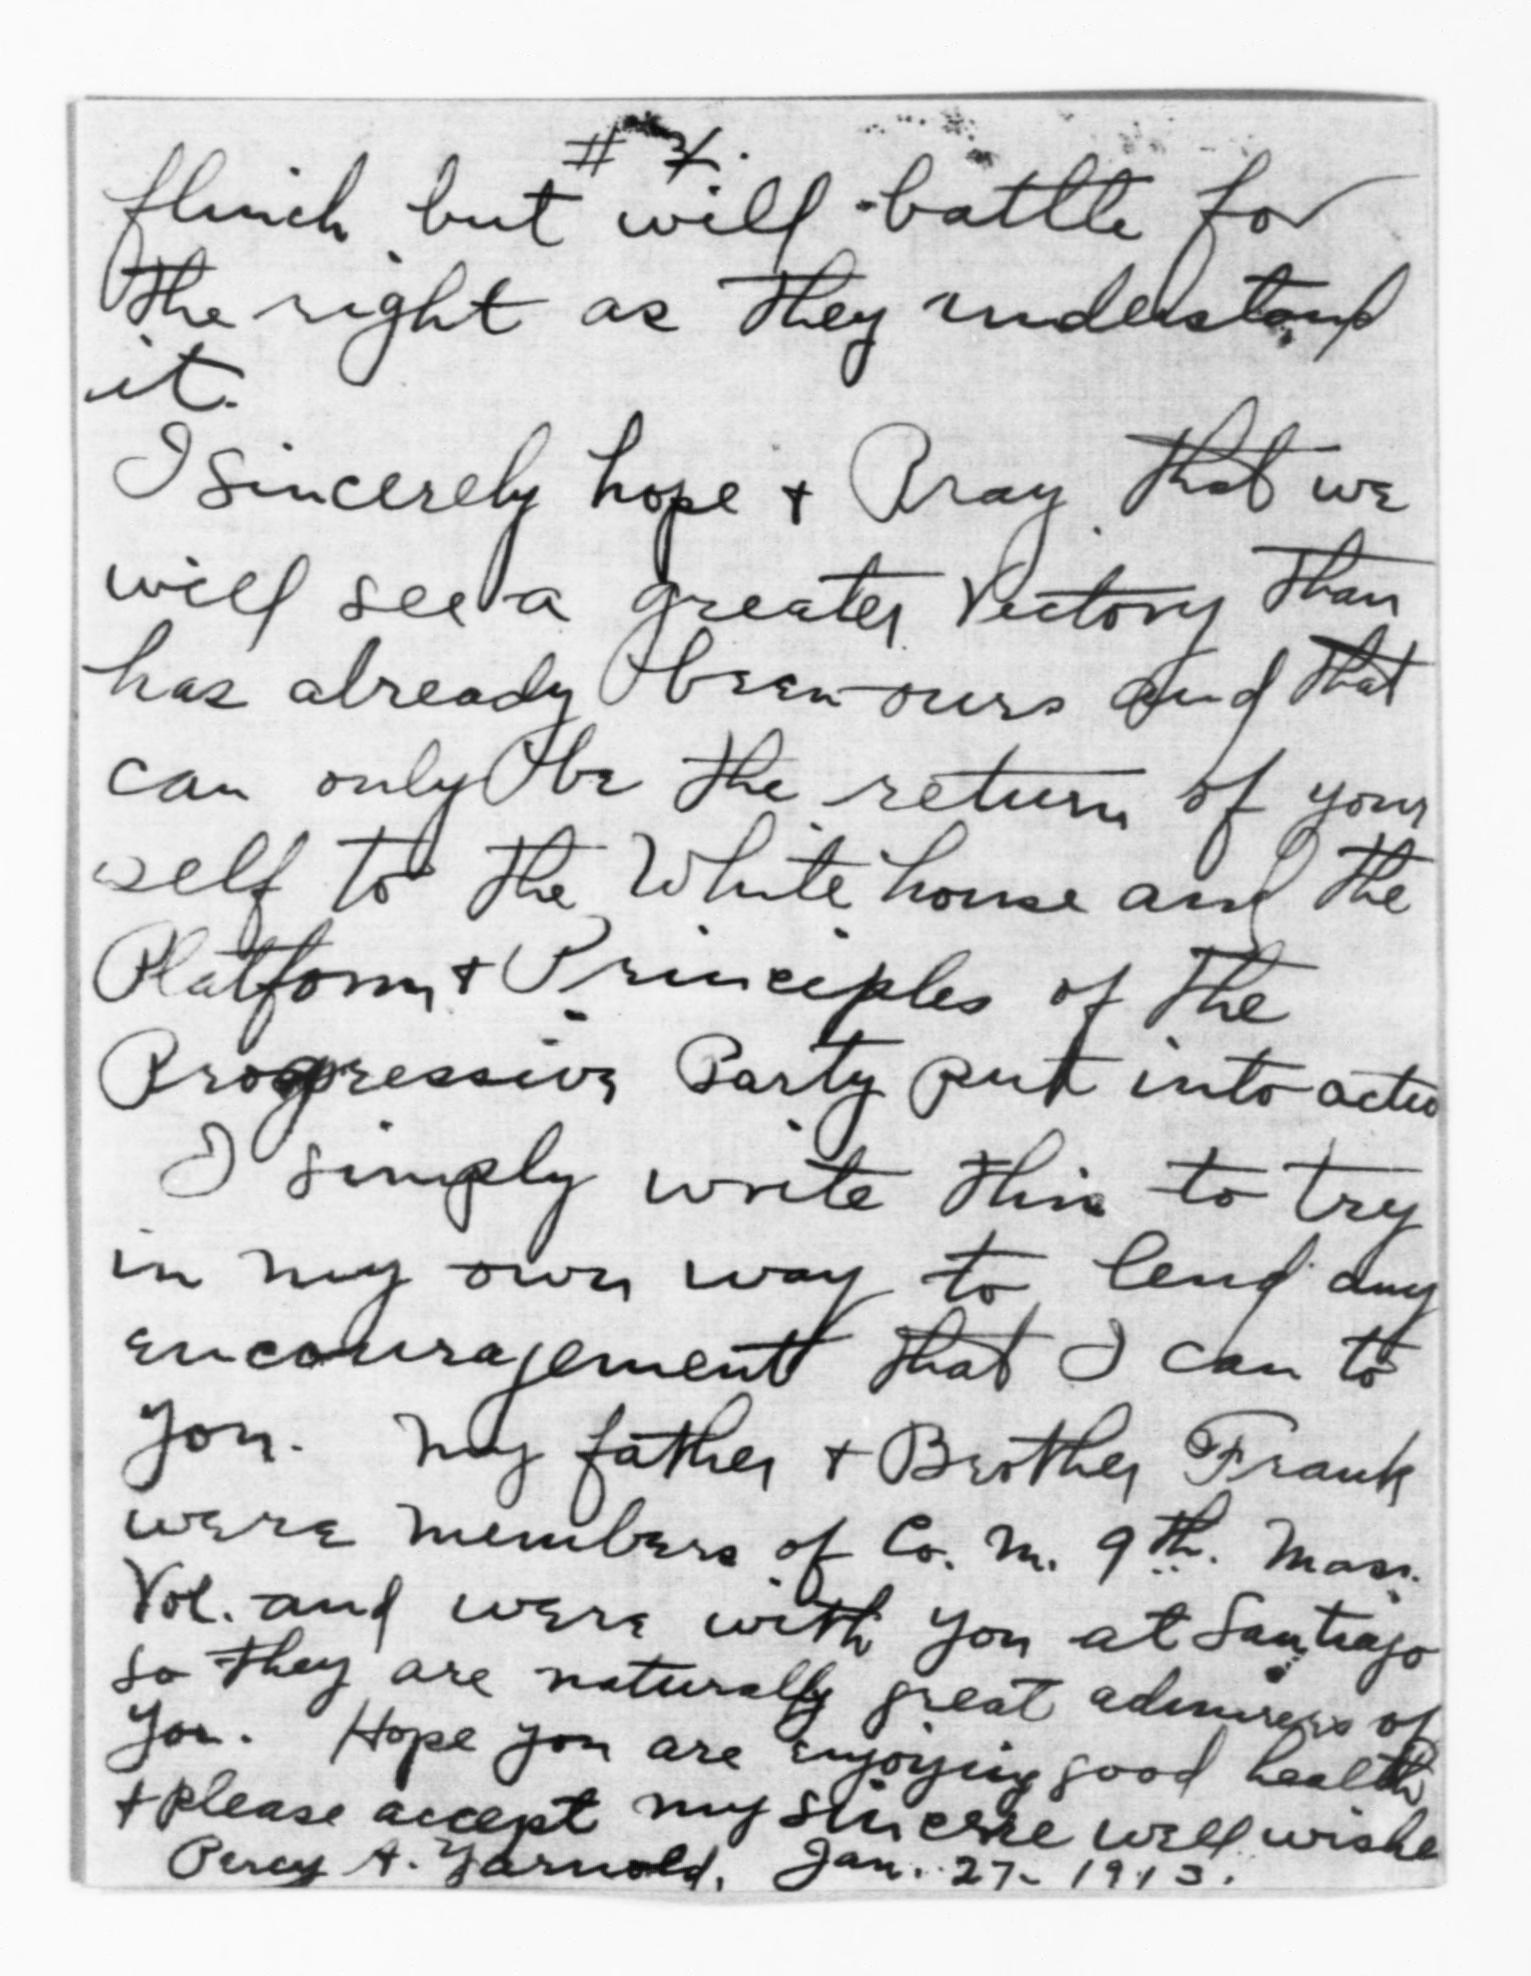 # 4.
flinch but will battle for
the right as they understand
it.
I sincerely hope + Pray that we
will see a greater Victory than
has already been ours and that
can only be the return of your
self to the White house and the
Platform + Principles of the
Progressive Party put into actio
I simply write this to try
in my own way to lend any
encouragement that I can to
you. My father + Brother Frank
were members of Co. M. 9th. Mass.
Vol. and were with you at Santiago
so they are naturally great admirers of
you. Hope you are enjoying good health
+ please accept my sincere well wishe
Percy A. Yarnold. Jan. 27 - 1913.